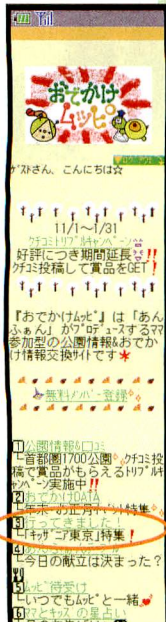 おでかけ
ムッピ
ゲストさん、こんにちは☆
11/1〜1/31
クチコミトリプルキャンペーン
好評につき期間延長!!
クチコミ投稿して賞品をGET!
『おでかけムッピ』は「あん
ふぁん」がプロデュースするママ
参加型の公園情報&おでか
け情報交換サイトです
無料メンバー登録
1公園情報&口コミ
└首都圏1700公園 クチコミ投
稿で賞品がもらえるトリプルキ
ャンペーン実施中!!
2おでかけDATA
3行ってきました!
└「キッザニア東京」特集!
└今日の献立は決まった?
5ムッピ待受け
└いつでもムッピと一緒
6ママとキッズの星占い